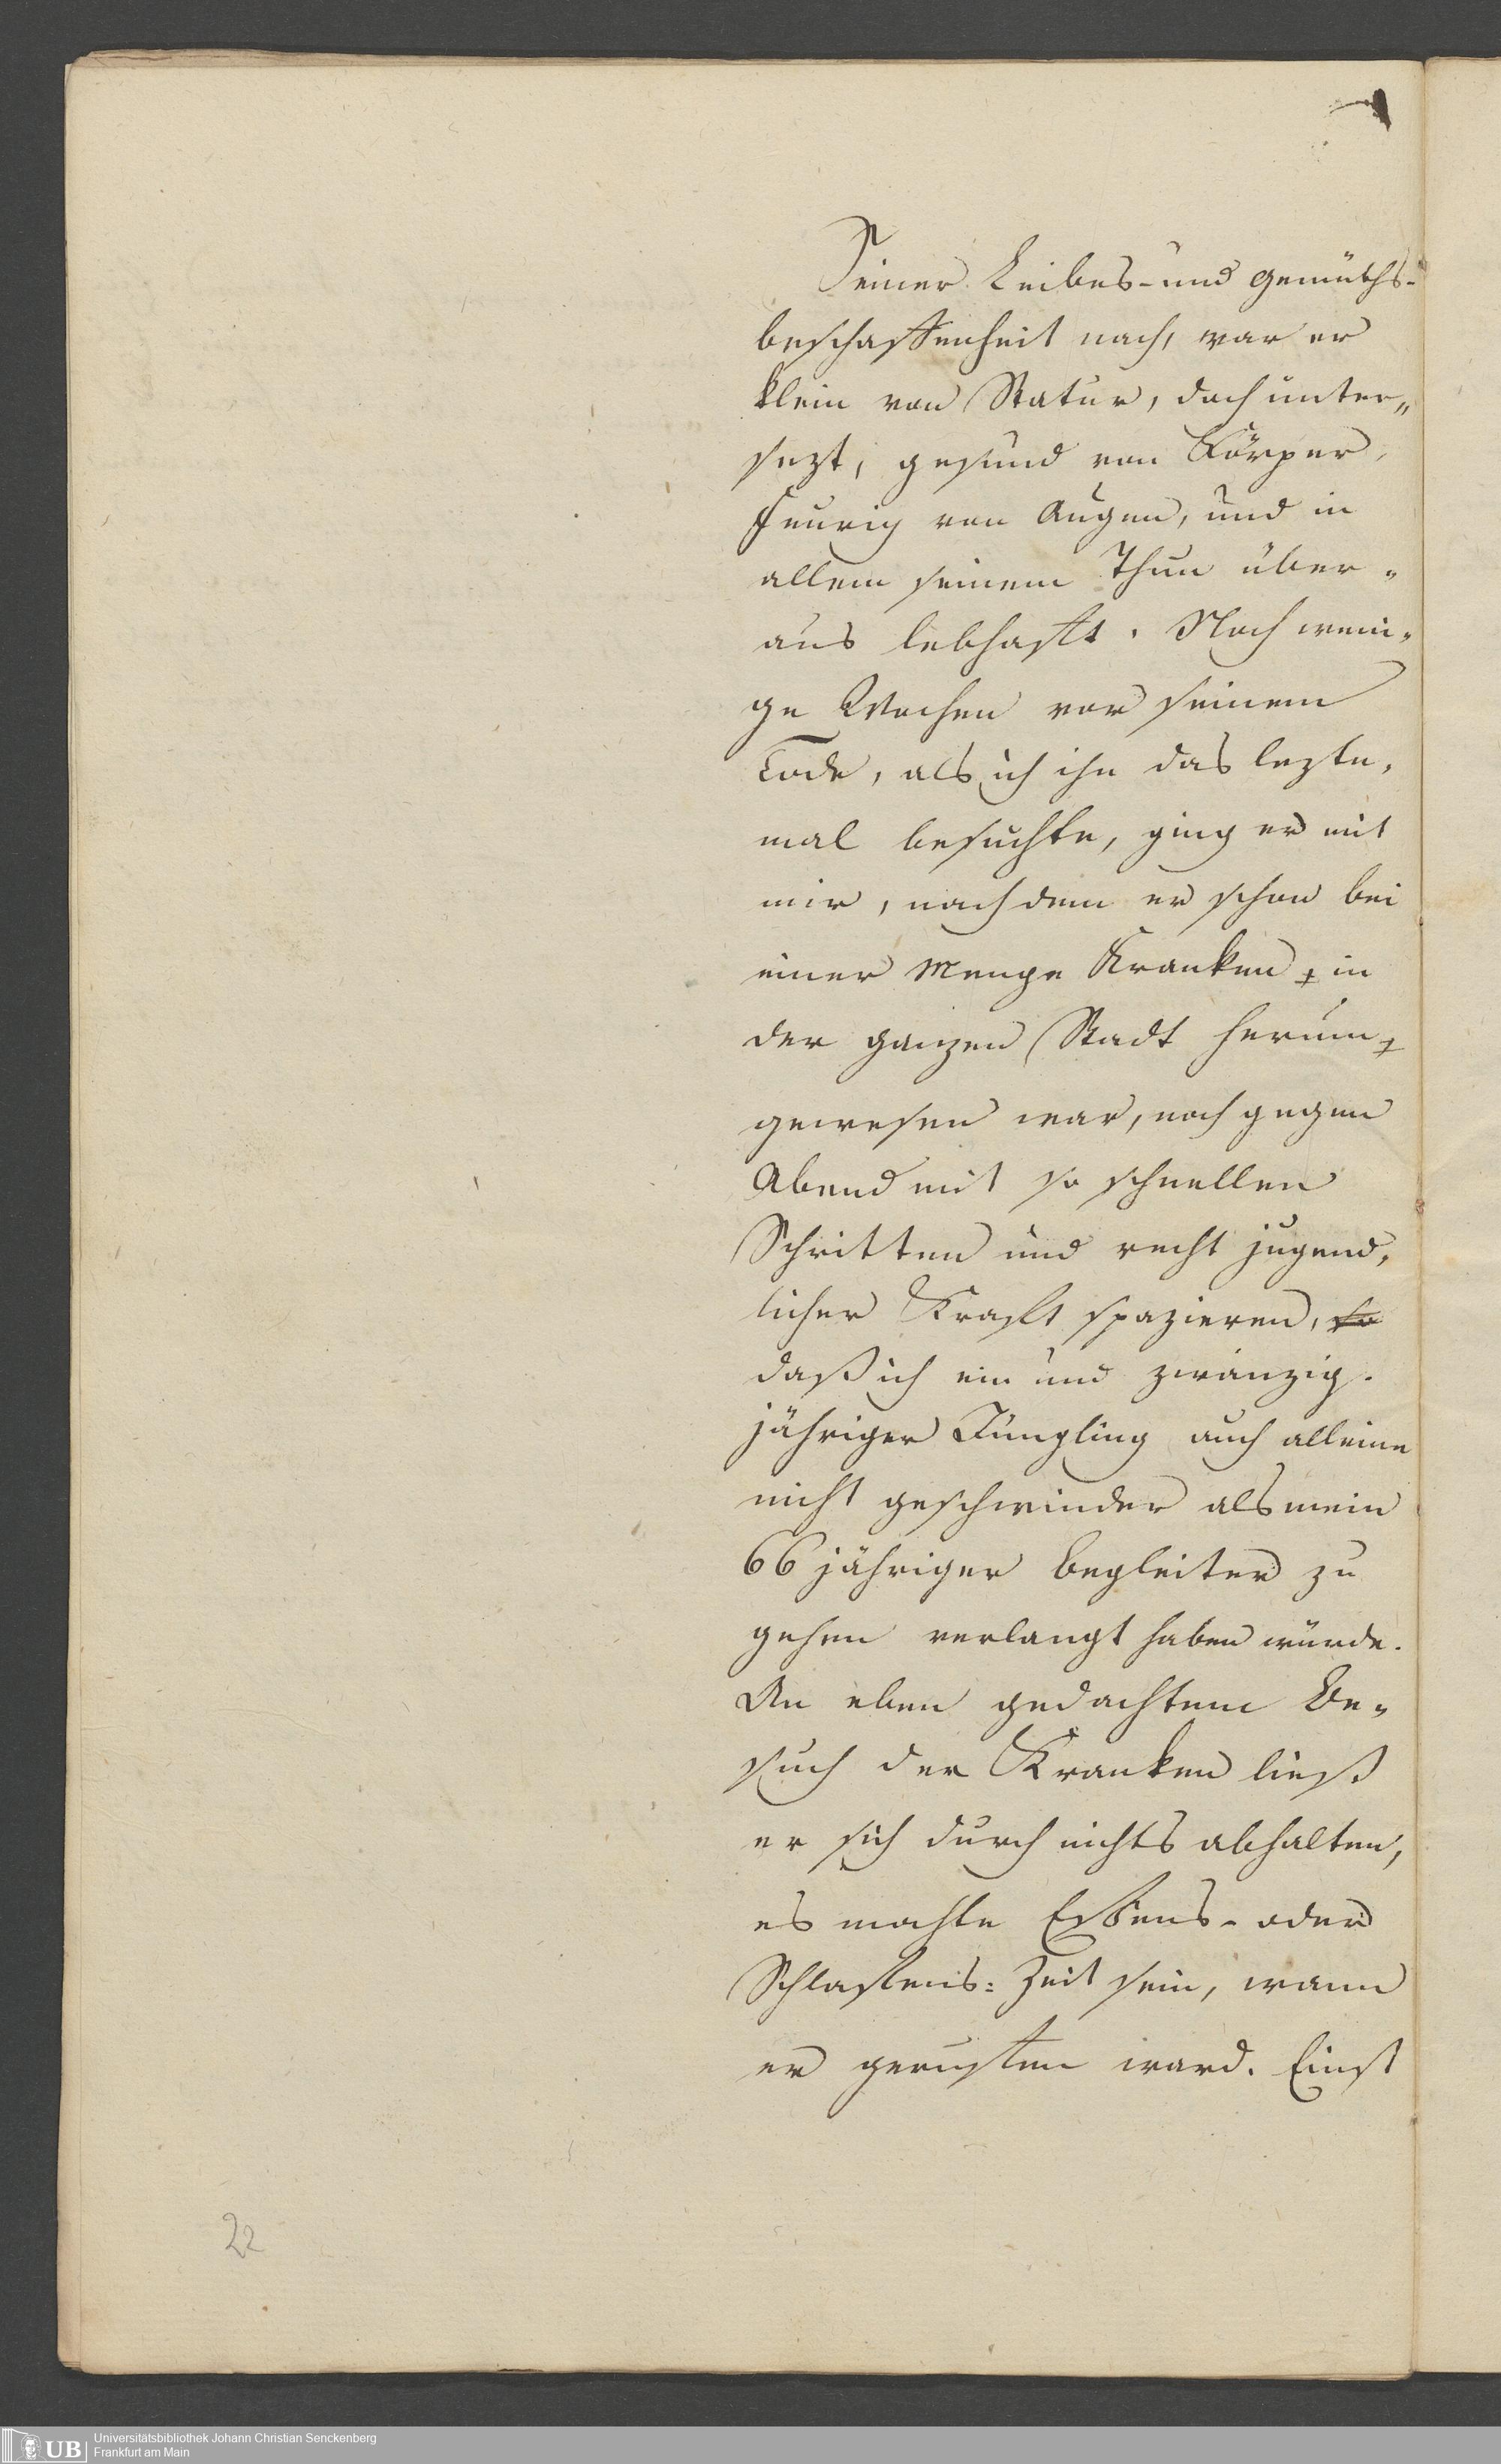 Seiner Leibes- und Gemüths-
beschaffenheit nach, war er
klein von Statur, doch unter„
sezt, gesund von Körper,
feurig von Augen, und in
allem seinem Thun über„
aus lebhafft. Noch weni„
ge Wochen vor seinem
Tode, als ich ihn das lezte„
mal besuchte, ging er mit
mir, nachdem er schon bei
einer Menge Kranken, in
der ganzen Stadt herum,
gewesen war, noch gegen
Abend mit so schnellen
Schritten und recht jugend„
licher Krafft spazieren, so
daß ich ein und zwanzig-
jähriger Jüngling auch alleine
nicht geschwinder als mein
66 jähriger Begleiter zu
gehen verlangt haben würde.
An eben gedachtem Be„
such der Kranken ließ
er sich durch nichts abhalten,
es mochte Essens- oder
Schlaffens-Zeit sein, wann
er geruffen ward. Einst
22
UB
Universitätsbibliothek Johann Christian Senckenberg
Frankfurt am Main